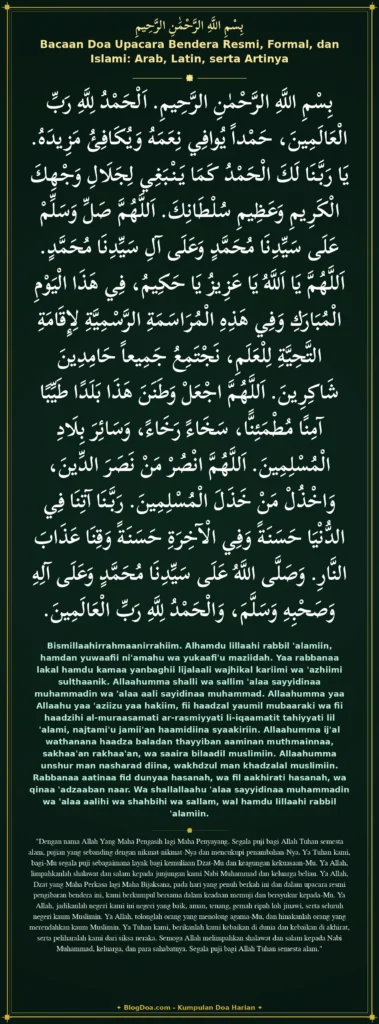 بِسْمِ اللَّهِ الرَّحْمَٰنِ الرَّحِيمِ
Bacaan Doa Upacara Bendera Resmi, Formal, dan
Islami: Arab, Latin, serta Artinya
بِسْمِ اللَّهِ الرَّحْمٰنِ الرَّحِيمِ. اَلْحَمْدُ لِلَّهِ رَبِّ
الْعَالَمِينَ، حَمْداً يُوَافِي نِعَمَهُ وَيُكَافِئُ مَزِيدَهُ.
يَا رَبَّنَا لَكَ الْحَمْدُ كَمَا يَنْبَغِي لِجَلَالِ وَجْهِكَ
الْكَرِيمِ وَعَظِيمِ سُلْطَانِكَ. اَللَّهُمَّ صَلِّ وَسَلِّمْ
عَلَى سَيِّدِنَا مُحَمَّدٍ وَعَلَى آلِ سَيِّدِنَا مُحَمَّدٍ.
اَللَّهُمَّ يَا اَللَّهُ يَا عَزِيزُ يَا حَكِيمُ، فِي هَذَا الْيَوْمِ
الْمُبَارَكِ وَفِي هَذِهِ الْمُرَاسَمَةِ الرَّسْمِيَّةِ لِإِقَامَةِ
التَّحِيَّةِ لِلْعَلَمِ، نَجْتَمِعُ جَمِيعاً حَامِدِينَ
شَاكِرِينَ. اَللَّهُمَّ اجْعَلْ وَطَنَنَ هَذَا بَلَدًا طَيِّبًا
آمِنًا مُطْمَئِنًّا، سَخَاءً رَخَاءً، وَسَائِرَ بِلَادِ
الْمُسْلِمِينَ. اَللَّهُمَّ انْصُرْ مَنْ نَصَرَ الدِّينَ،
وَاخْذُلْ مَنْ خَذَلَ الْمُسْلِمِينَ. رَبَّنَا آتِنَا فِي
الدُّنْيَا حَسَنَةً وَفِي الْآخِرَةِ حَسَنَةً وَقِنَا عَذَابَ
النَّارِ. وَصَلَّى اللَّهُ عَلَى سَيِّدِنَا مُحَمَّدٍ وَعَلَى آلِهِ
وَصَحْبِهِ وَسَلَّمَ، وَالْحَمْدُ لِلَّهِ رَبِّ الْعَالَمِينَ.
Bismillaahirrahmaanirrahiim. Alhamdu lillaahi rabbil 'alamiin,
hamdan yuwaafii ni'amahu wa yukaafi'u maziidah. Yaa rabbanaa
lakal hamdu kamaa yanbaghii lijalaali wajhikal kariimi wa 'azhiimi
sulthaanik. Allaahumma shalli wa sallim 'alaa sayyidinaa
muhammadin wa 'alaa aali sayidinaa muhammad. Allaahumma yaa
Allaahu yaa 'aziizu yaa hakiim, fii haadzal yaumil mubaaraki wa fii
haadzihi al-muraasamati ar-rasmiyyati li-iqaamatit tahiyyati lil
'alami, najtami'u jamii'an haamidiina syaakiriin. Allaahumma ij'al
wathanana haadza baladan thayyiban aaminan muthmainnaa,
sakhaa'an rakhaa'an, wa saaira bilaadil muslimiin. Allaahumma
unshur man nasharad diina, wakhdzul man khadzalal muslimiin.
Rabbanaa aatinaa fid dunyaa hasanah, wa fil aakhirati hasanah, wa
qinaa 'adzaaban naar. Wa shallallaahu 'alaa sayyidinaa muhammadin
wa 'alaa aalihi wa shahbihi wa sallam, wal hamdu lillaahi rabbil
'alamiin.
"Dengan nama Allah Yang Maha Pengasih lagi Maha Penyayang. Segala puji bagi Allah Tuhan semesta
alam, pujian yang sebanding dengan nikmat-nikmat-Nya dan mencukupi penambahan-Nya. Ya Tuhan kami,
bagi-Mu segala puji sebagaimana layak bagi kemuliaan Dzat-Mu dan keagungan kekuasaan-Mu. Ya Allah,
limpahkanlah shalawat dan salam kepada junjungan kami Nabi Muhammad dan keluarga beliau. Ya Allah,
Dzat yang Maha Perkasa lagi Maha Bijaksana, pada hari yang penuh berkah ini dan dalam upacara resmi
pengibaran bendera ini, kami berkumpul bersama dalam keadaan memuji dan bersyukur kepada-Mu. Ya
Allah, jadikanlah negeri kami ini negeri yang baik, aman, tenang, gemah ripah loh jinawi, serta seluruh
negeri kaum Muslimin. Ya Allah, tolonglah orang yang menolong agama-Mu, dan hinakanlah orang yang
merendahkan kaum Muslimin. Ya Tuhan kami, berikanlah kami kebaikan di dunia dan kebaikan di akhirat,
serta peliharalah kami dari siksa neraka. Semoga Allah melimpahkan shalawat dan salam kepada Nabi
Muhammad, keluarga, dan para sahabatnya. Segala puji bagi Allah Tuhan semesta alam."
✦ BlogDoa.com - Kumpulan Doa Harian ✦